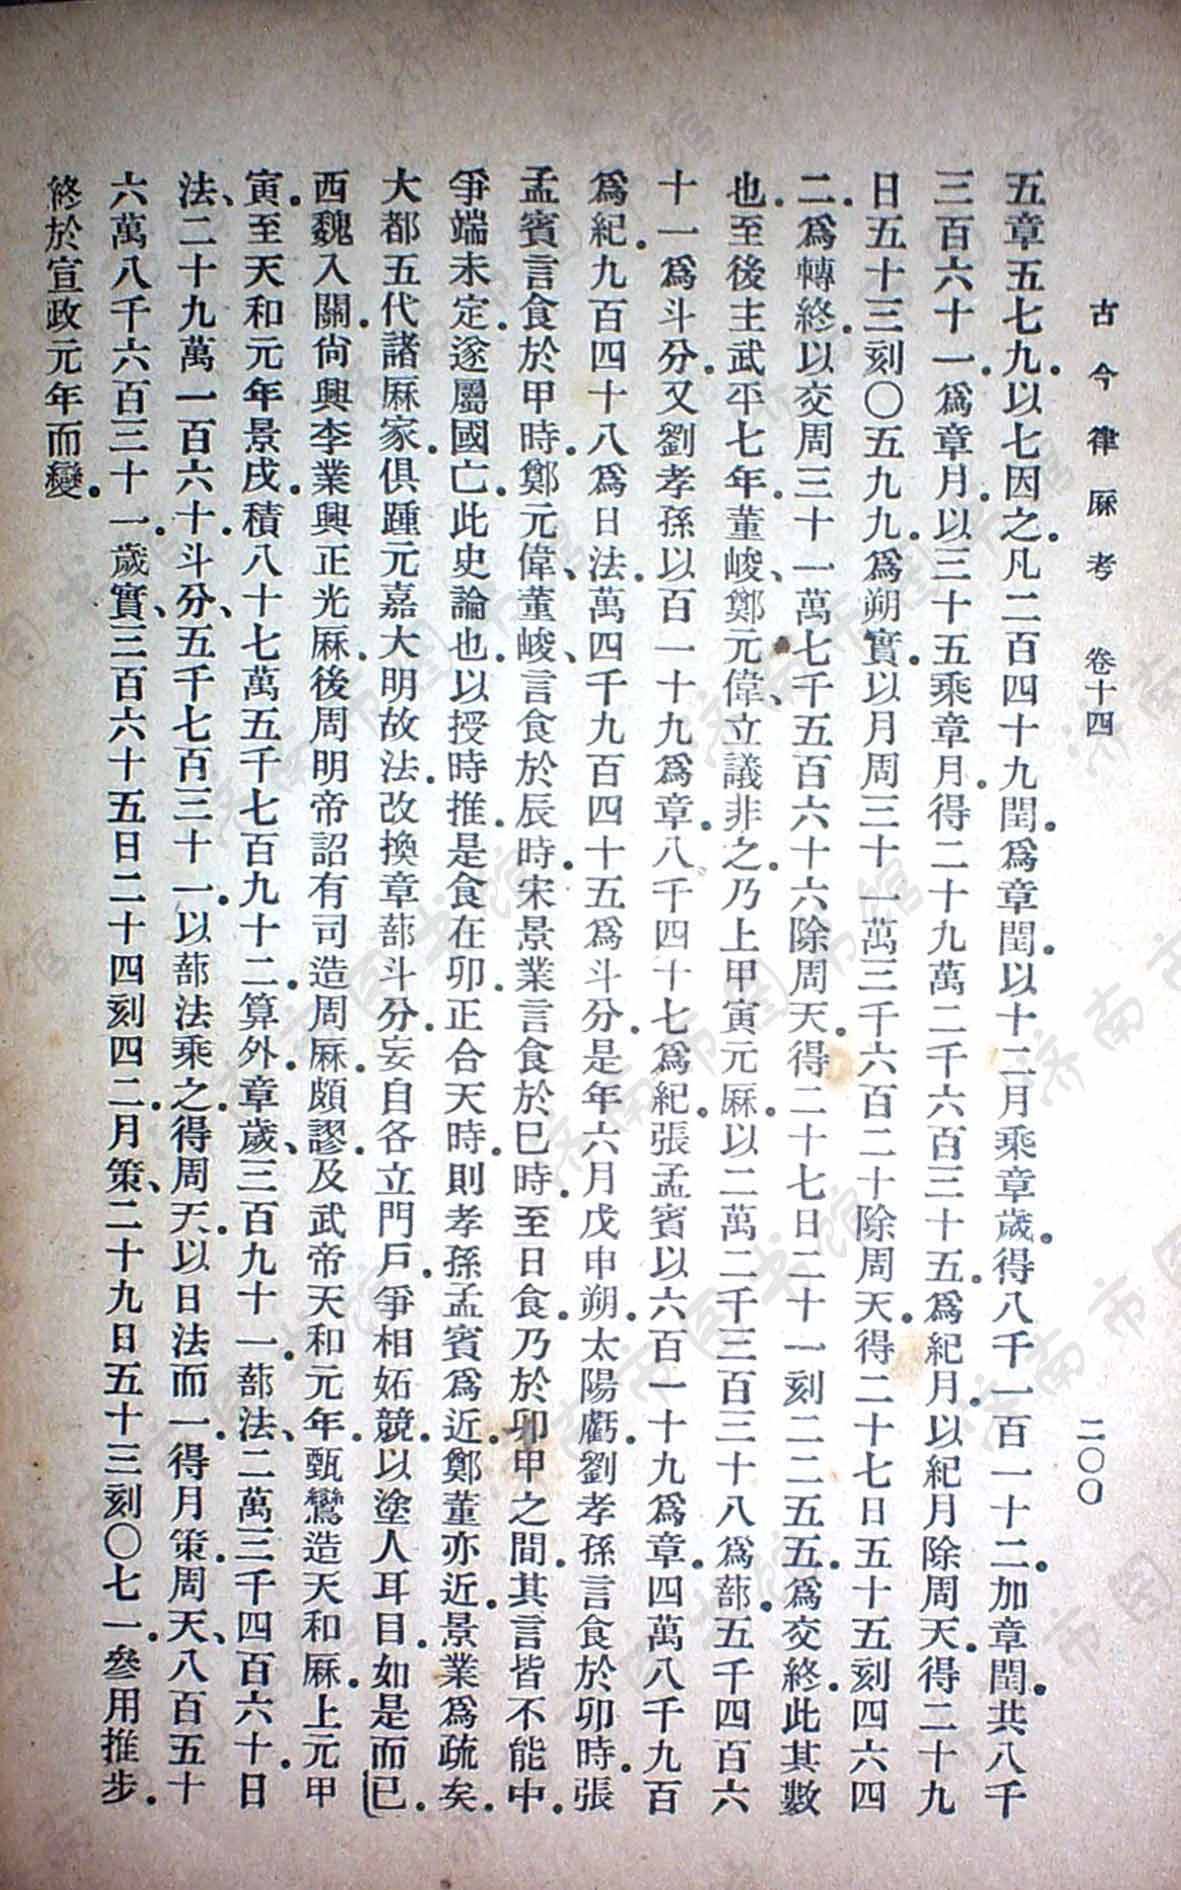 古今律厤考　卷十四　二〇〇
五章五七九。以七因之。凡二百四十九閏。爲章閏。以十二月乘章歲。得八千一百一十二。加章閏。共八千
三百六十一。爲章月。以三十五乘章月。得二十九萬二千六百三十五。爲紀月。以紀月除周天。得二十九
日五十三刻〇五九九。爲朔實。以月周三十一萬三千六百二十除周天。得二十七日五十五刻四六四
二。爲轉終。以交周三十一萬七千五百六十六除周天。得二十七日二十一刻二二五五。爲交終。此其數
也。至後主武平七年。董峻、鄭元偉、立議非之。乃上甲寅元厤。以二萬二千三百三十八爲蔀。五千四百六
十一爲斗分。又劉孝孫以百一十九爲章。八千四十七爲紀。張孟賓以六百一十九爲章。四萬八千九百
爲紀。九百四十八爲日法。萬四千九百四十五爲斗分。是年六月戊申朔。太陽虧。劉孝孫言食於卯時。張
孟賓言食於甲時。鄭元偉、董峻、言食於辰時。宋景業言食於巳時。至日食。乃於卯甲之間。其言皆不能中。
爭端未定。遂屬國亡。此史論也。以授時推。是食在卯。正合天時。則孝孫孟賓爲近。鄭董亦近。景業爲疏矣。
大都五代諸厤家。俱踵元嘉大明故法。改換章蔀斗分。妄自各立門戶。爭相妬競。以塗人耳目。如是而已。
西魏入關。尙興李業興正光厤。後周明帝詔有司造周厤。頗謬。及武帝天和元年。甄鸞造天和厤。上元甲
寅。至天和元年景戌。積八十七萬五千七百九十二。算外。章歲、三百九十一。蔀法、二萬三千四百六十。日
法、二十九萬一百六十。斗分、五千七百三十一。以蔀法乘之。得周天。以日法而一。得月策。周天、八百五十
六萬八千六百三十一。歲實、三百六十五日二十四刻四二。月策、二十九日五十三刻〇七一。參用推步。
終於宣政元年而變。